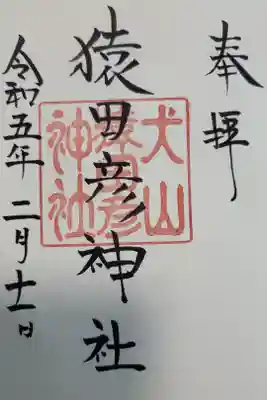 奉拝
猿田彦神社
犬山
猿田彦
神社
令和五年 二月十一日